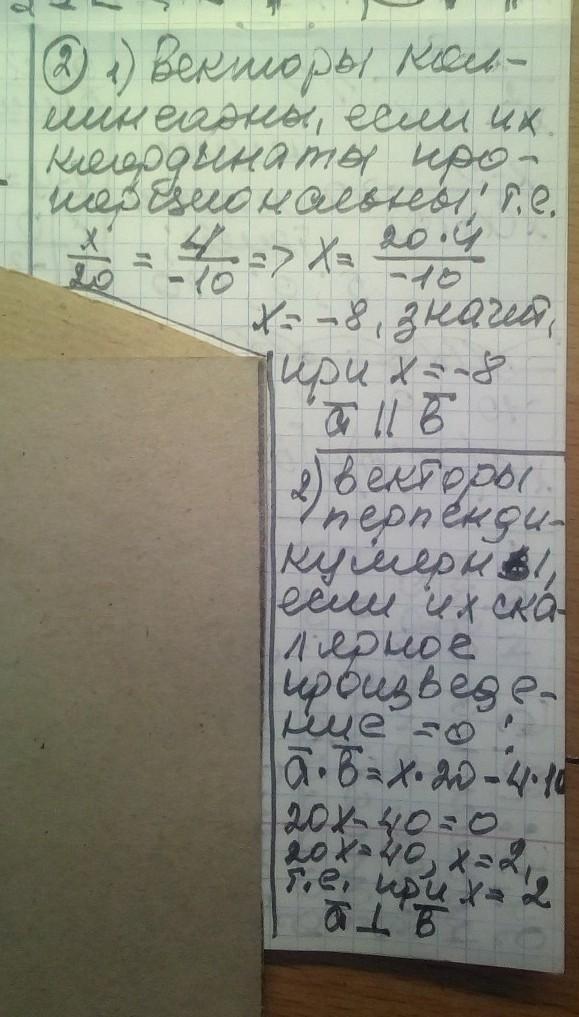 ② 1) Векторы кол-
линеарны, если их
координаты про-
порциональны, т.е.
x/20 = 4/-10 => x = 20·4/-10
x = -8, значит,
при x = -8
a̅ || b̅
2) Векторы
перпенди-
кулярны,
если их ска-
лярное
произведе-
ние = 0:
a̅·b̅ = x·20 - 4·10
20x - 40 = 0
20x = 40, x = 2,
т.е. при x = 2
a̅ ⊥ b̅